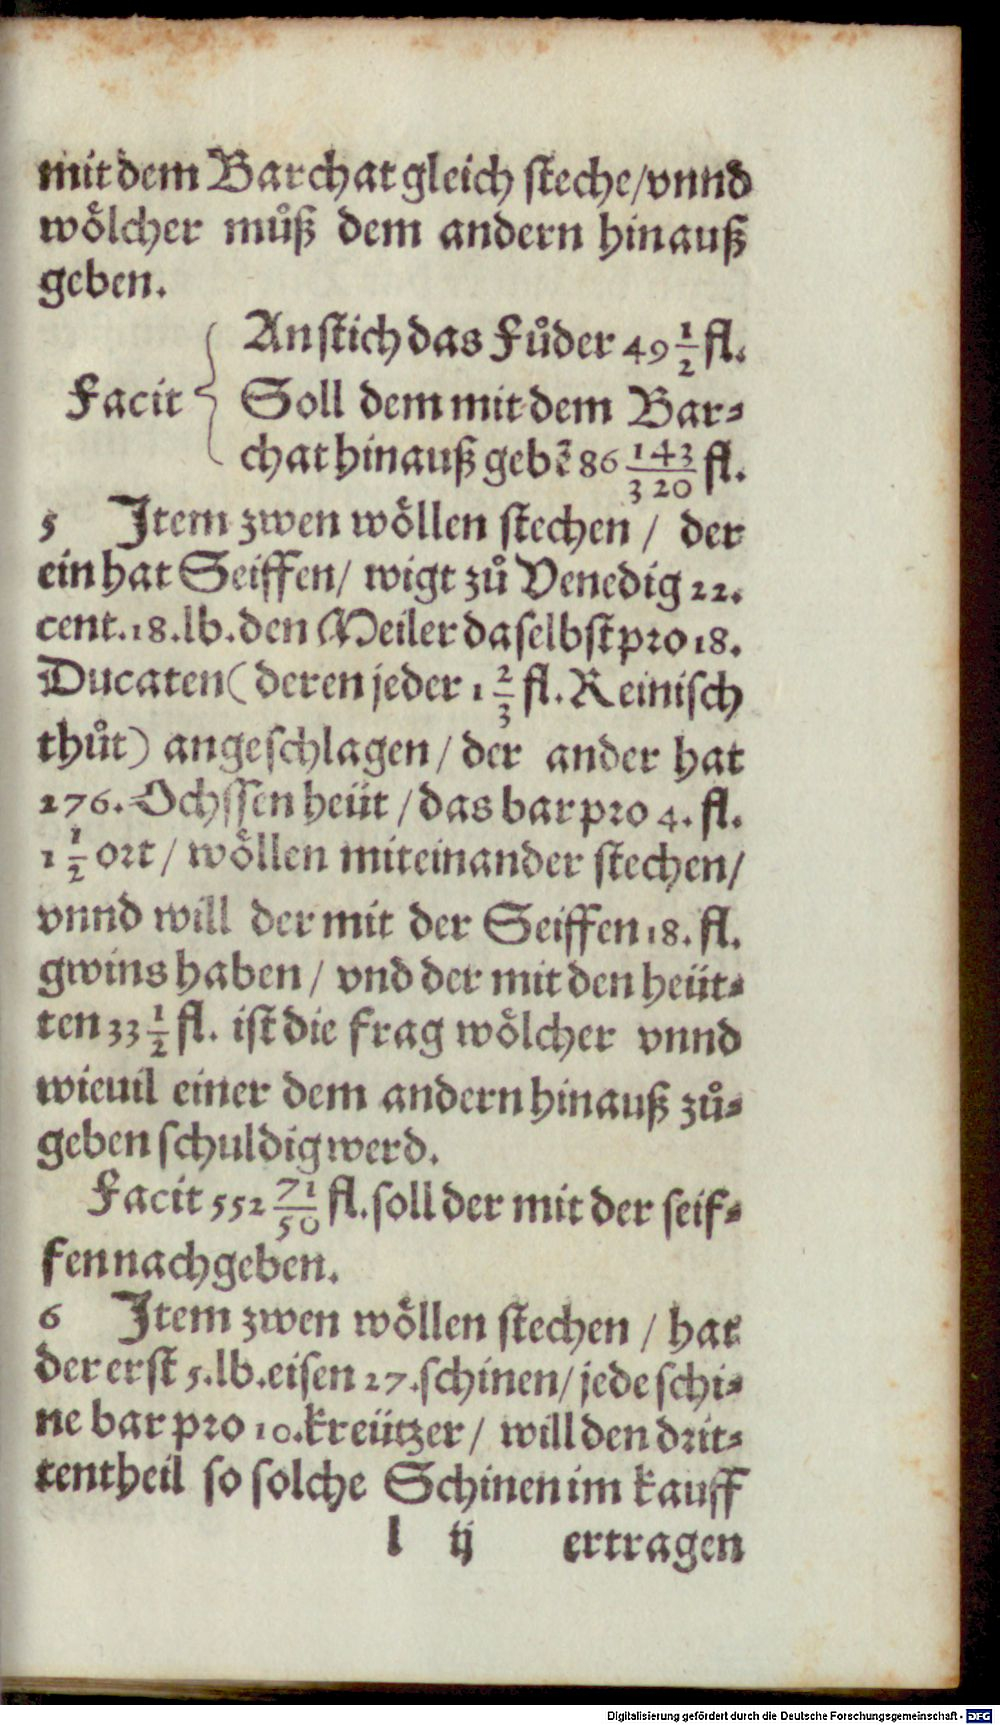 mit dem Barchat gleich steche/vnnd
wölcher můß dem andern hinauß
geben.
An stich das Fůder 49 1/2 fl.
Facit { Soll dem mit dem Bar-
chat hinauß gebẽ 86 143/320 fl.
5 Item zwen wöllen stechen / der
ein hat Seiffen/ wigt zů Venedig 22.
cent. 18. lb. den Meiler daselbst pro 18.
Ducaten (deren jeder 1 2/3 fl. Reinisch
thůt) angeschlagen / der ander hat
276. Ochssen heüt / das bar pro 4. fl.
1 1/2 ort / wöllen miteinander stechen/
vnnd will der mit der Seiffen 18. fl.
gwins haben / vnd der mit den heüt-
ten 33 1/2 fl. ist die frag wölcher vnnd
wieuil einer dem andern hinauß zů-
geben schuldig werd.
Facit 552 71/50 fl. soll der mit der seif-
fen nachgeben.
6 Item zwen wöllen stechen / hat
der erst 5. lb. eisen 27. schinen/ jede schi-
ne bar pro 10. kreützer / will den drit-
tentheil so solche Schinen im kauff
l ij ertragen
Digitalisierung gefördert durch die Deutsche Forschungsgemeinschaft - DFG